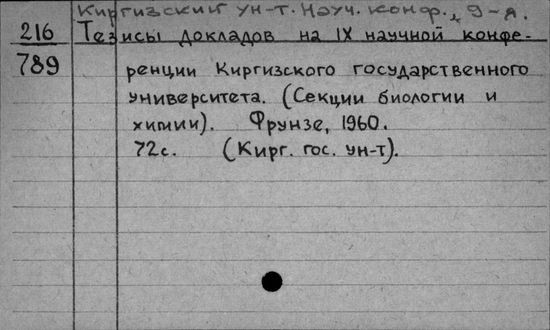 Киргизский ун-т. Науч. конф., 9-я.
216
789
Тезисы докладов на IX научной конфе-
ренции Киргизского государственного
университета. (Секции биологии и
химии). Фрунзе, 1960.
72с. (Кирг. гос. ун-т).